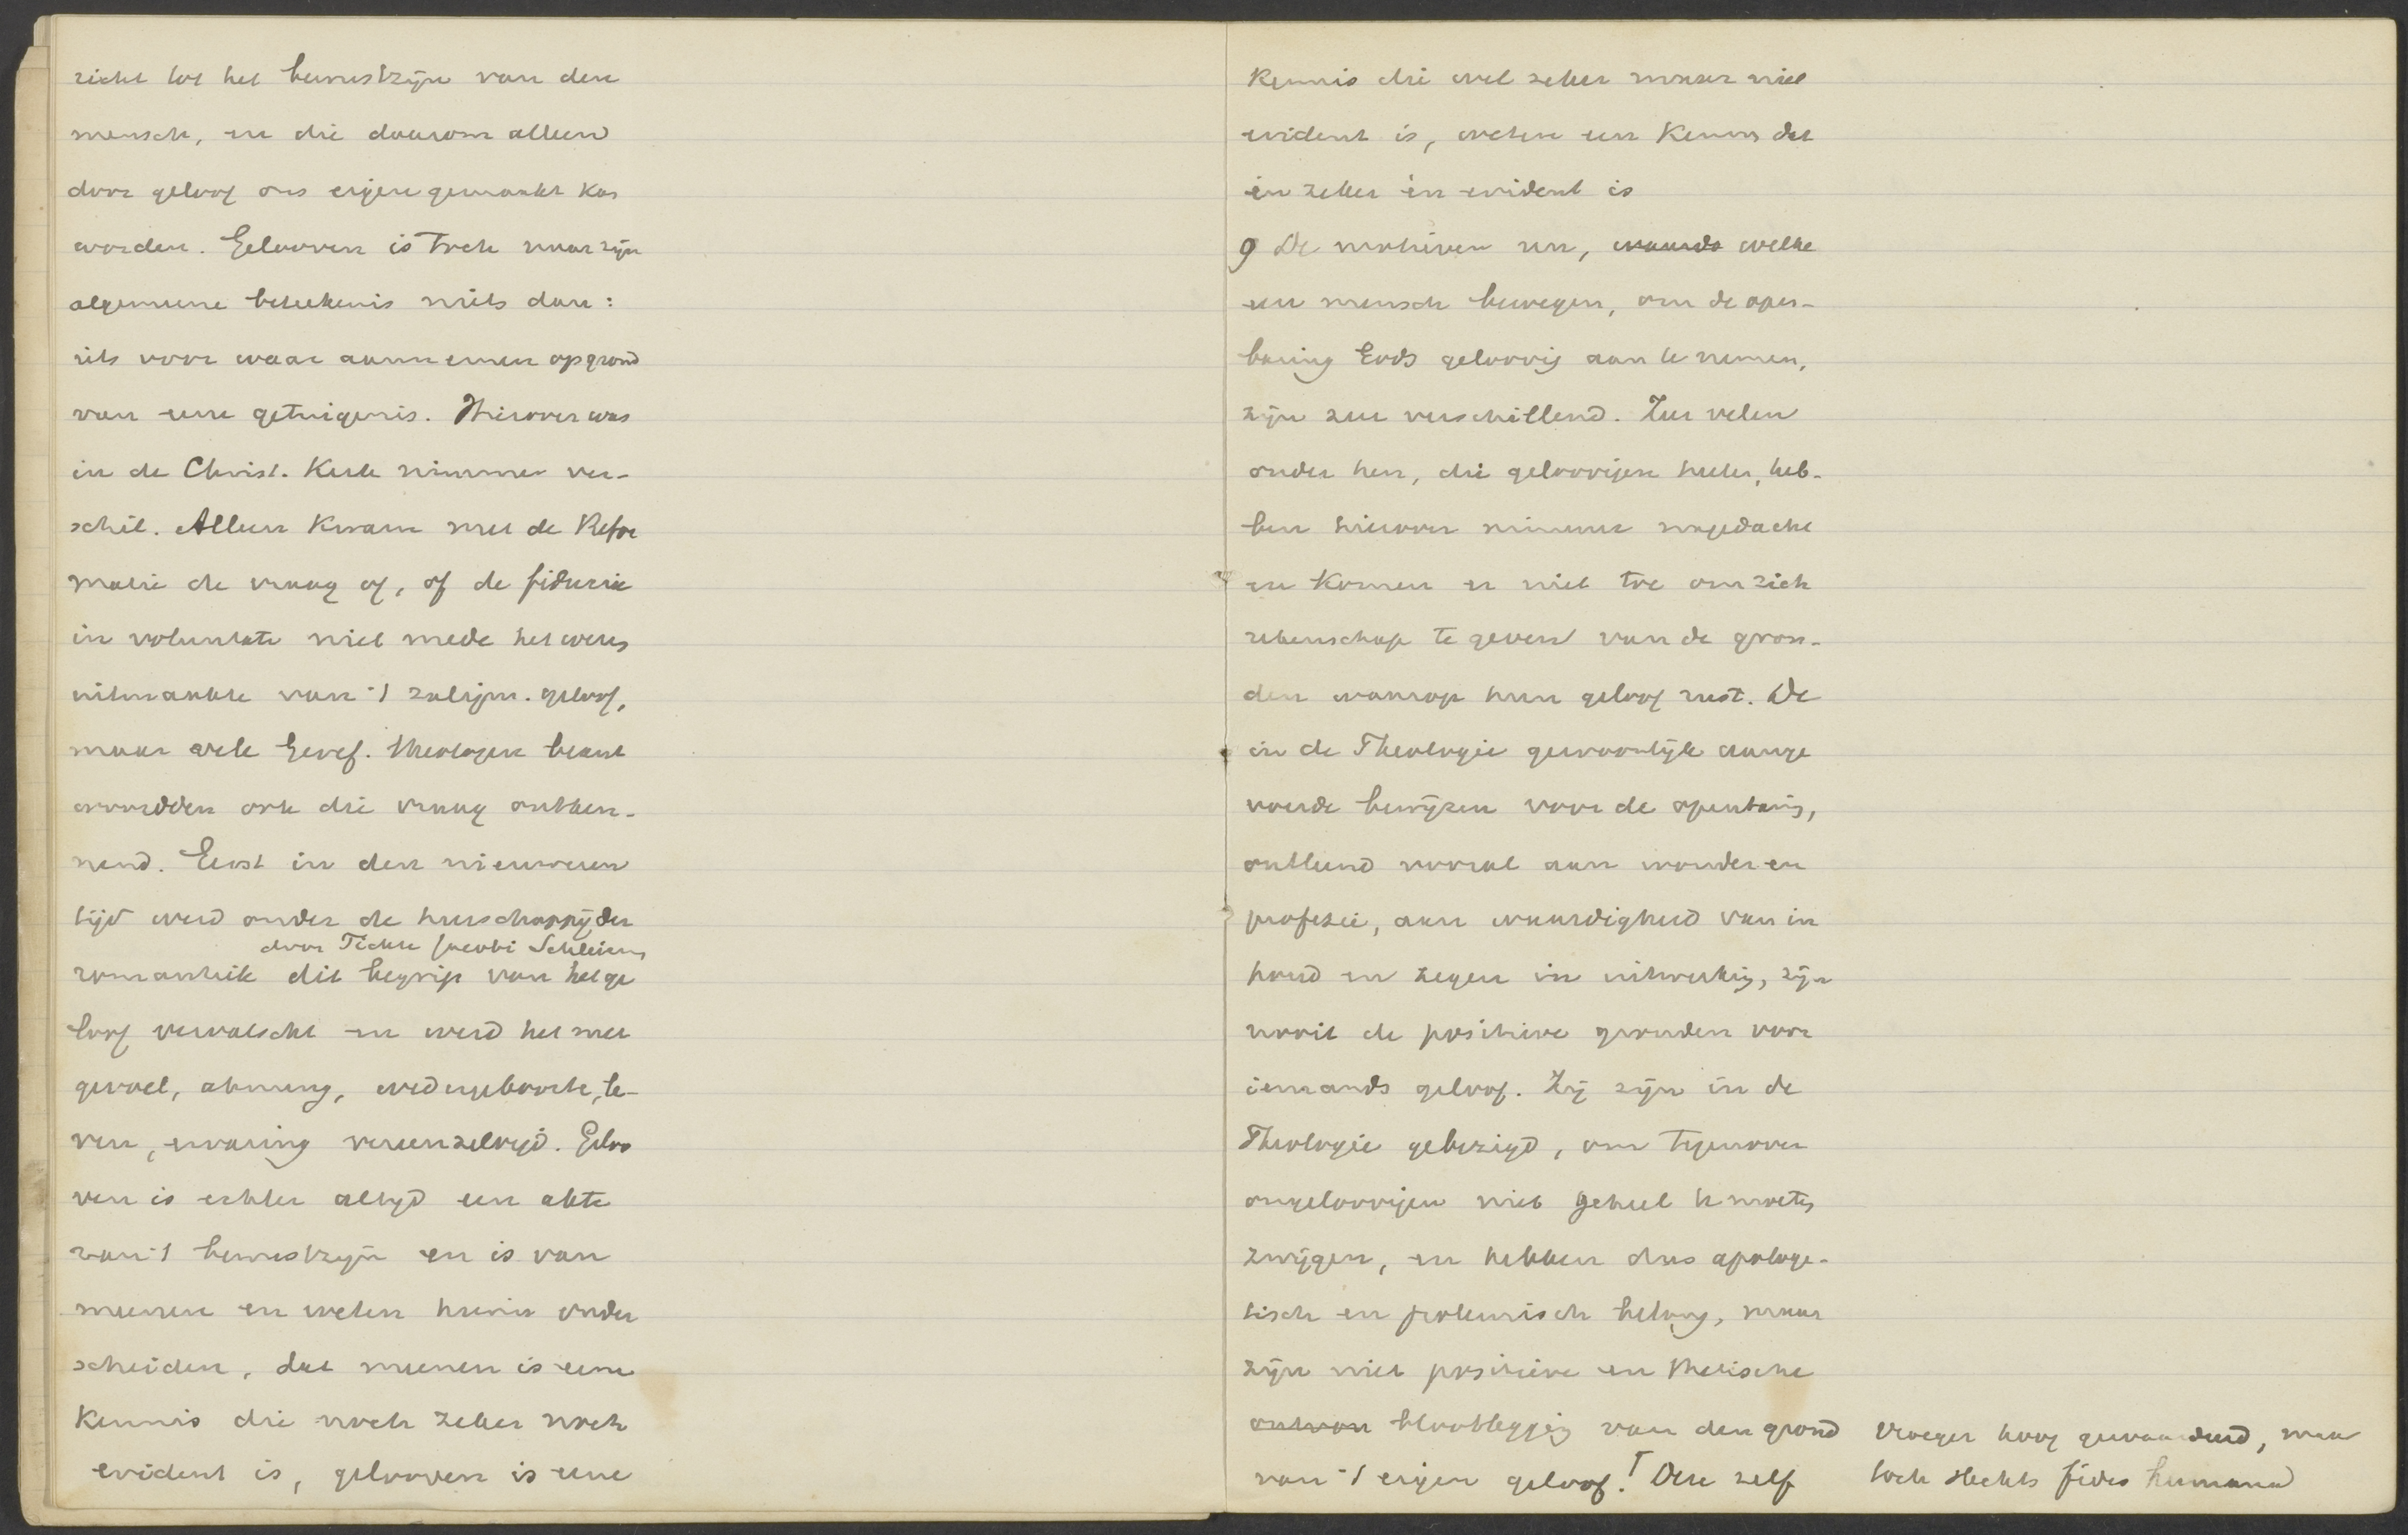 richt tot het bewustzijn van den
mensch, en die daarom alleen
door geloof ons eigen gemaakt kan
worden. Gelooven is toch naar zijn
algemeene beteekenis niets dan:
iets voor waar aannemen op grond
van eene getuigenis. Hierover was
in de Christ. Kerk nimmer ver-
schil. Alleen kwam met de Refor
matie de vraag op, of de fiducia
in voluntate niet mede het wezen
uitmaakte van 't zaligm. geloof,
maar vele Geref. theologen beant
woordden ook die vraag ontken-
nend. Eerst in den nieuweren
tijd werd onder de heerschappij der
door Fichte Jacobi Schleierm
romantiek dit begrip van het ge
loof vervalscht en werd het met
gevoel, ahnung, wedergeboorte, le-
ven, ervaring vereenzelvigd. Geloo
ven is echter altijd een akte
van 't bewustzijn en is van
meenen en weten hierin onder
scheiden, dat meenen is eene
kennis die noch zeker noch
evident is, gelooven is eene
kennis die wel zeker maar niet
evident is, weten een kennis dat
èn zeker èn evident is
9 De motieven nu, waardo welke
een mensch bewegen, om de open-
baring Gods geloovig aan te nemen,
zijn zeer verschillend. Zeer velen
onder hen, die geloovigen heeten, heb-
ben hierover nimmer nagedacht
en komen er niet toe om zich
rekenschap te geven van de gron-
den waarop hun geloof rust. De
in de Theologie gewoonlijk aange
voerde bewijzen voor de openbaring,
ontleend vooral aan wonder en
profezie, aan waardigheid van in
houd en zegen in uitwerking, zijn
nooit de positieve gronden voor
iemands geloof. Zij zijn in de
Theologie gebezigd, om tegenover
ongeloovigen niet geheel te moeten
zwijgen, en hebben dus apologe-
tisch en polemisch belang, maar
zijn niet positieve en thetische
blootlegging van den grond
van 't eigen geloof. Deze zelf
vroeger hoog gewaardeerd, maar
toch slechts fides humana